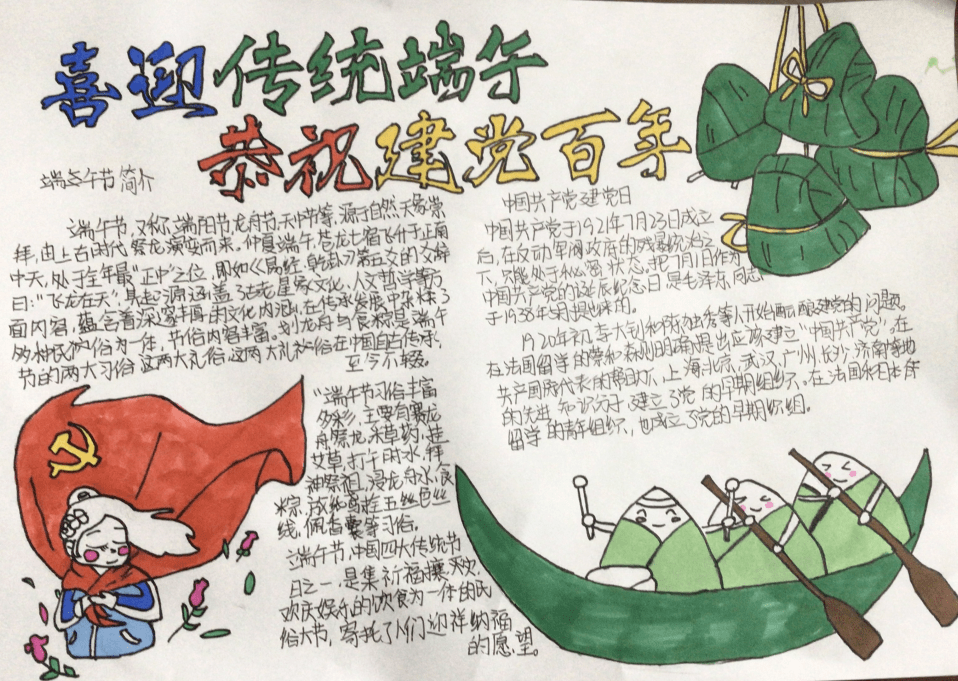 喜迎传统端午
恭祝建党百年
端午节简介
端午节,又称端阳节,龙舟节,天中节等,源于自然天象崇
拜,由上古时代祭龙演变而来,仲夏端午,苍龙七宿飞升于正南
中天,处于全年最"正中"之位,即如《易经·乾卦》第五爻的爻辞
曰:"飞龙在天"。其起源涵盖了古老星象文化、人文哲学等方
面内容,蕴含着深邃丰厚的文化内涵,在传承发展中杂糅了
多种民俗为一体,节俗内容丰富。划龙舟与食粽是端午
节的两大习俗 这两大礼俗 这两大礼俗在中国自古传承,
至今不辍。
"端午节习俗丰富
多彩,主要有赛龙
舟祭龙,采草药,挂
艾草,打午时水,拜
神祭祖,浸龙舟水,食
粽,放纸鸢,拴五丝色丝
线,佩香囊等习俗。
端午节,中国四大传统节
日之一,是集祈福攘灾欢
欢庆娱乐的饮食为一体的民
俗大节,寄托了人们迎祥纳福
的愿望。
中国共产党建党日
中国共产党于1921年7月23日成立
后,在反动军阀政府的残暴统治之
下,只能处于秘密状态。把7月1日作为
中国共产党的诞辰纪念日,是毛泽东同志
于1938年5月提出来的。
1920年初,李大钊和陈独秀等人开始酝酿建党的问题。
在法国留学的蔡和森则明确提出应该建立"中国共产党",在
共产国际代表的帮助下,上海,北京,武汉,广州,长沙,济南等地
的先进知识分子,建立了党的早期组织。在法国和日本等
留学的青年组织,也成立了党的早期组织。